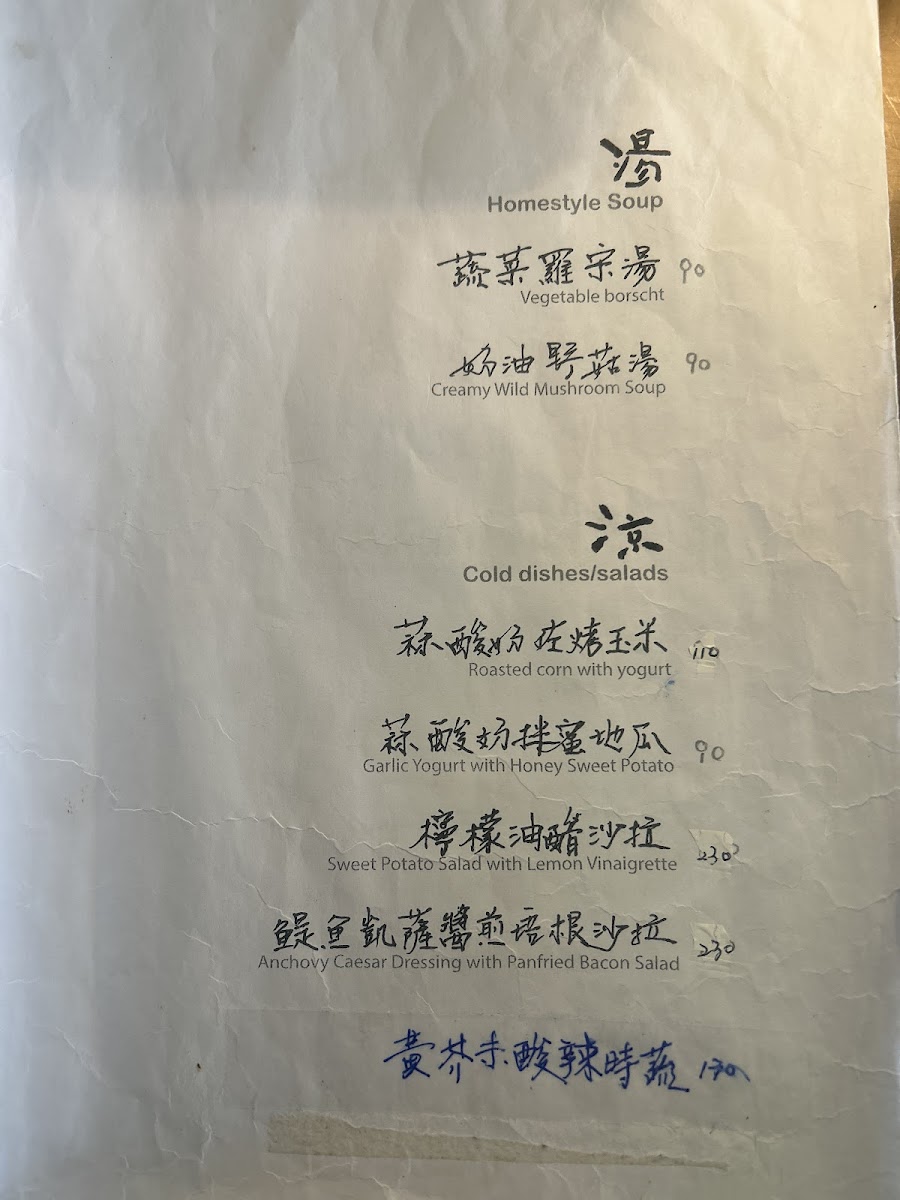 湯
Homestyle Soup
蔬菜羅宋湯 90
Vegetable borscht
奶油野菇湯 90
Creamy Wild Mushroom Soup
涼
Cold dishes/salads
蒜酸奶佐烤玉米 110
Roasted corn with yogurt
蒜酸奶拌蜜地瓜 90
Garlic Yogurt with Honey Sweet Potato
檸檬油醋沙拉 230
Sweet Potato Salad with Lemon Vinaigrette
鯷魚凱薩醬煎培根沙拉 230
Anchovy Caesar Dressing with Panfried Bacon Salad
黃芥末酸辣時蔬